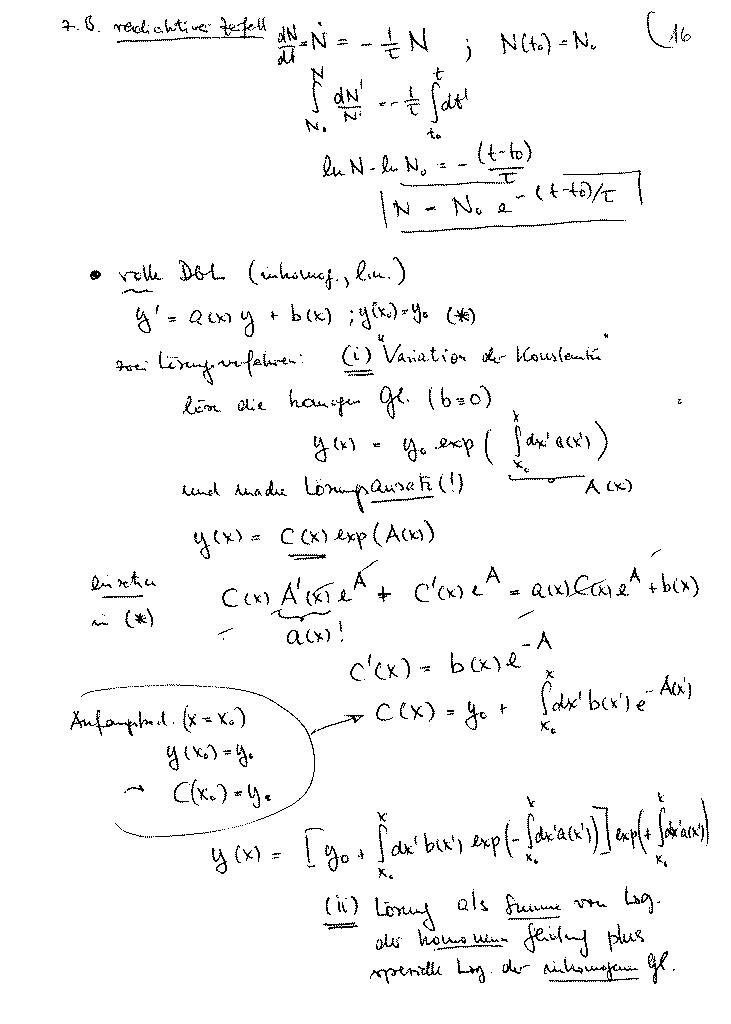 z.B. radioaktiver Zerfall dN/dt = Ṅ = - 1/τ N ; N(t₀) = N₀ (16
∫_{N₀}^{N} dN'/N' = - 1/τ ∫_{t₀}^{t} dt'
ln N - ln N₀ = - (t-t₀)/τ
N = N₀ e^{-(t-t₀)/τ}
• volle DGL (inhomog., lin.)
y' = a(x) y + b(x) ; y(x₀) = y₀ (*)
zwei Lösungsverfahren: (i) "Variation der Konstanten"
löse die homogen Gl. (b=0)
y(x) = y₀ exp ( ∫_{x₀}^{x} dx' a(x') )
A(x)
und mache Lösungsansatz (!)
y(x) = C(x) exp(A(x))
einsetzen C(x) A'(x) e^A + C'(x) e^A = a(x) C(x) e^A + b(x)
in (*) a(x)!
C'(x) = b(x) e^{-A}
Anfangsbed. (x = x₀) → C(x) = y₀ + ∫_{x₀}^{x} dx' b(x') e^{-A(x')}
y(x₀) = y₀
→ C(x₀) = y₀
y(x) = [ y₀ + ∫_{x₀}^{x} dx' b(x') exp(-∫_{x₀}^{x} dx' a(x')) ] exp(+∫_{x₀}^{x} dx' a(x'))
(ii) Lösung als Summe von Lsg.
der homogenen Gleichung plus
spezielle Lsg. der inhomogenen Gl.